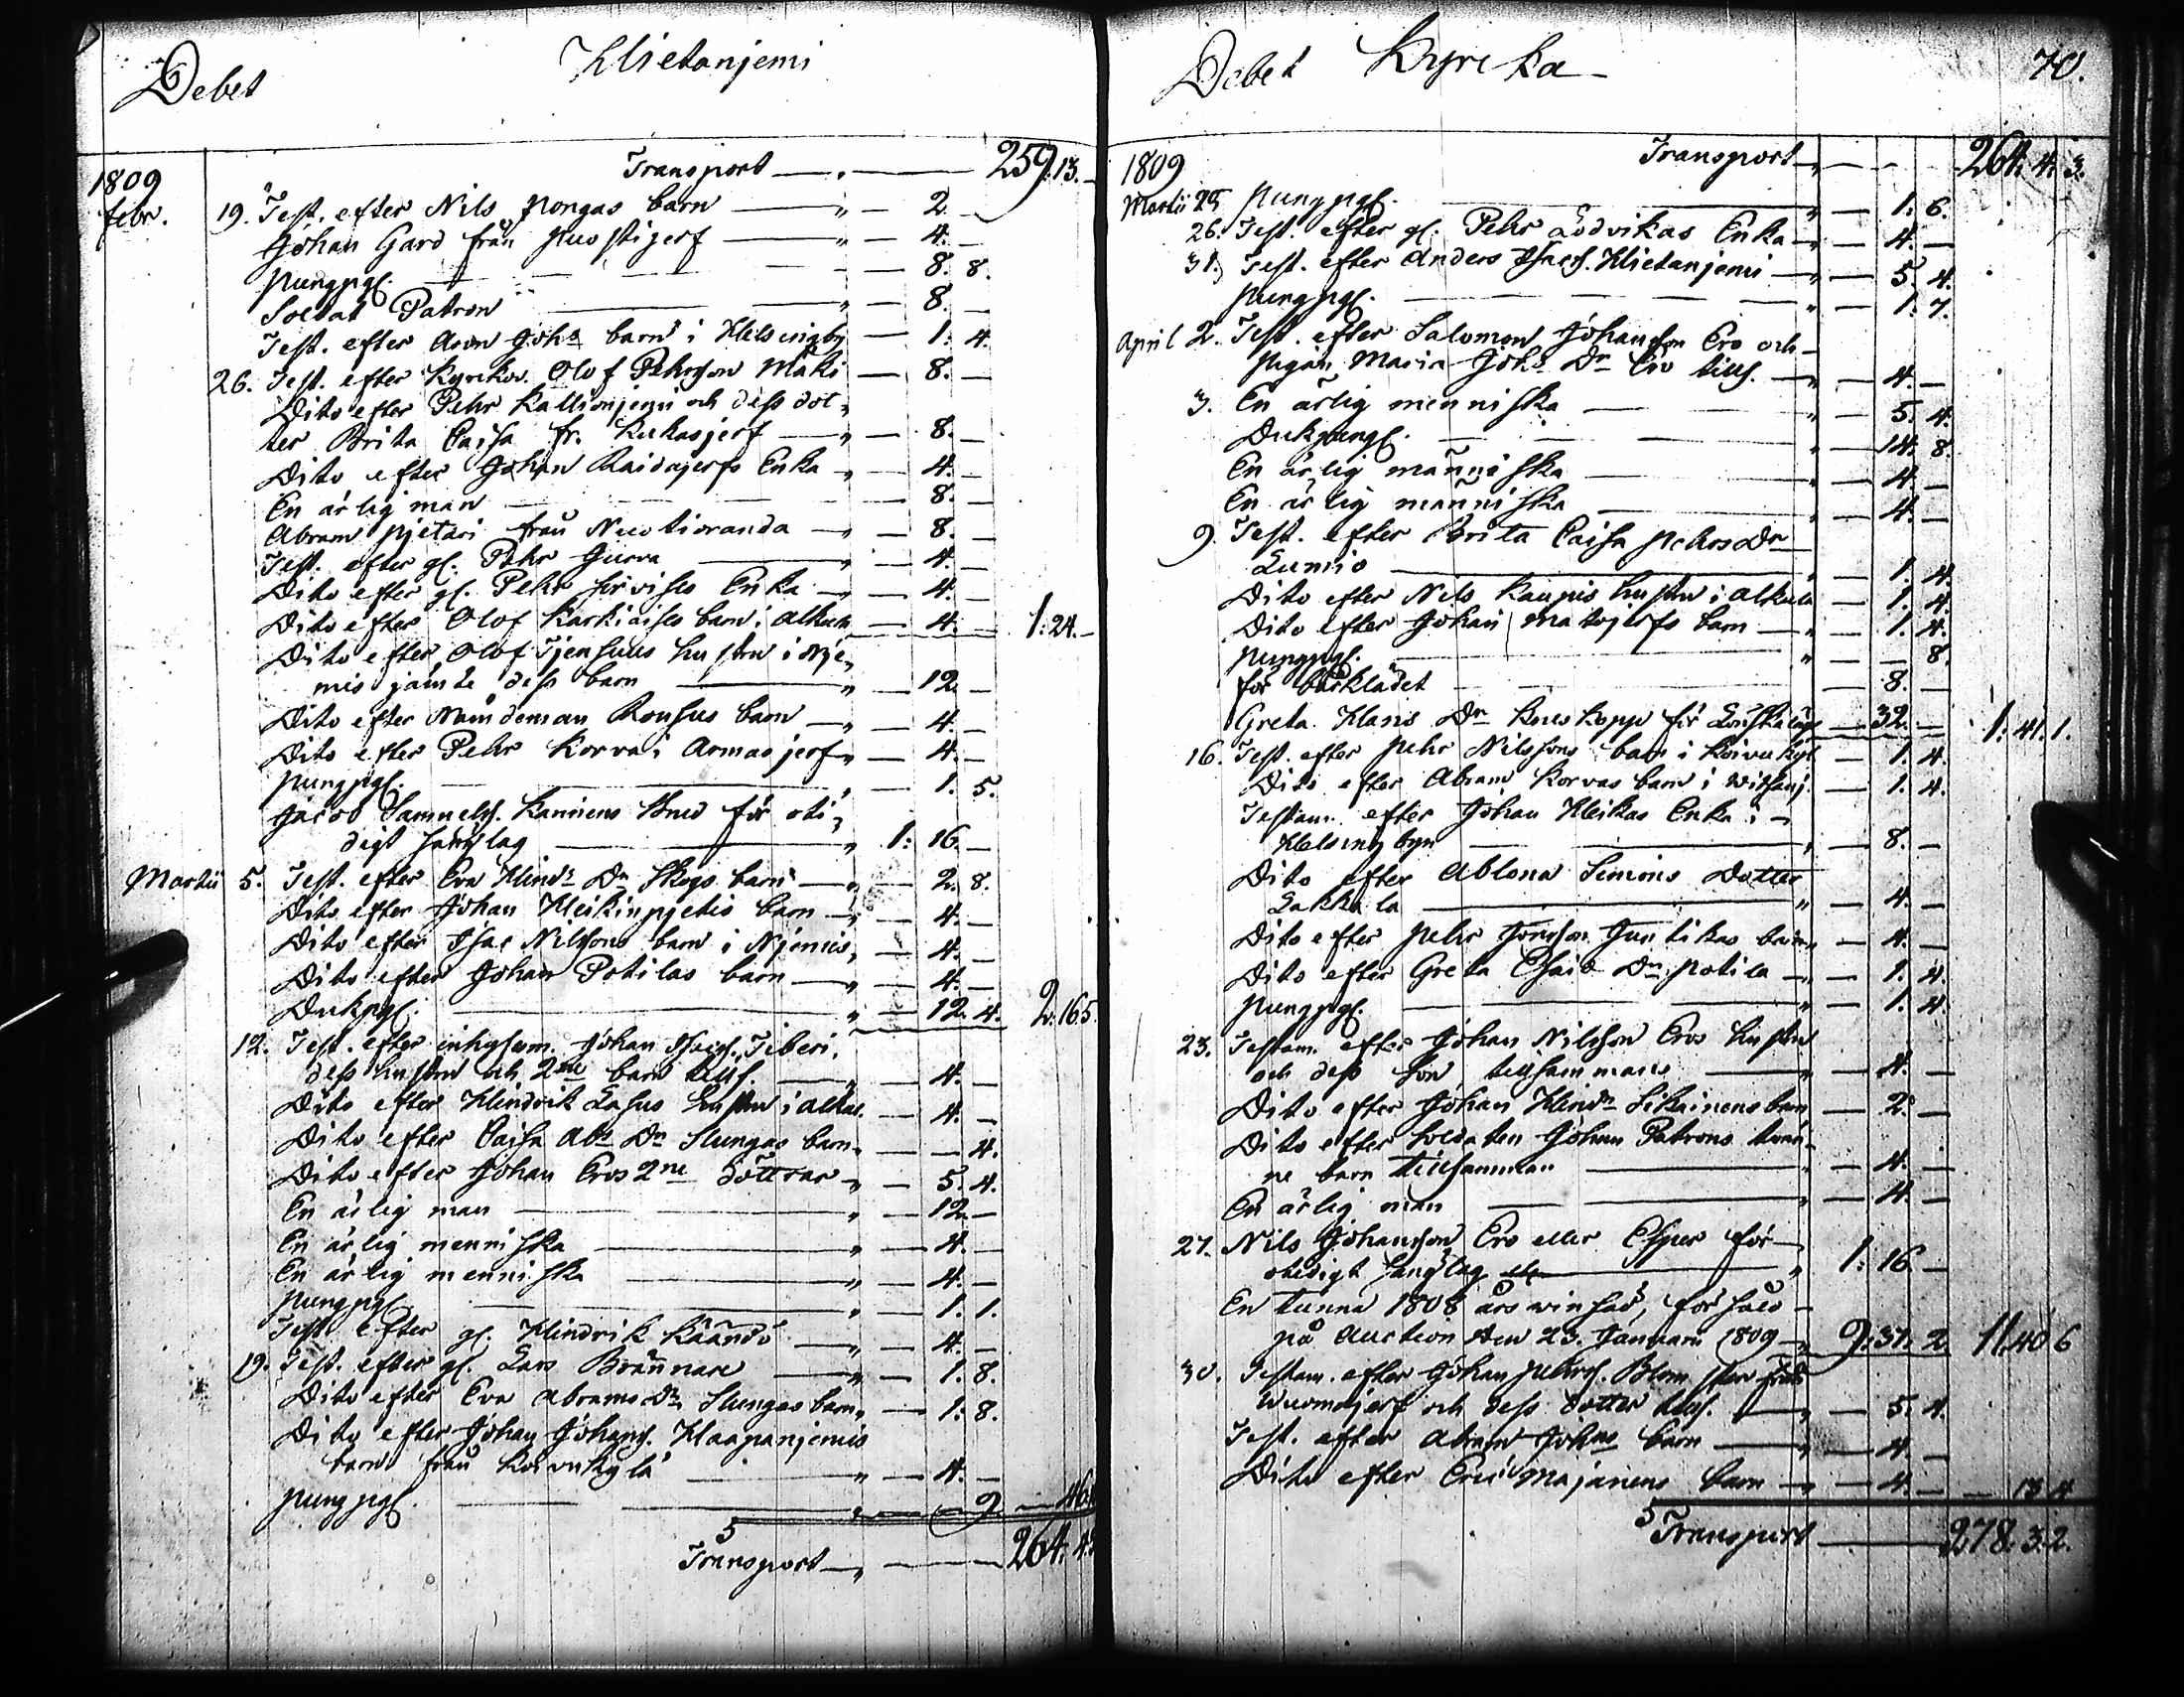 Debet Hietaniemi
Transport — 259. 13. —
1809
febr. 19. Test. efter Nils Pongas barn — " — 2. —
Johan Gard från Puostijerf — " — 4. —
Pungpgr. — 8. 8.
Soldat Patron — " — 8. —
Test. efter Aron Johs barn i Helsingby — 1. 4.
26. Test. efter Kyrkov. Olof Pehrsson Mäki — 8. —
Dito efter Pehr Kallionjemi och dess dot-
ter Brita Caisa fr. Kukasjerf — " — 8. —
Dito efter Johan Raidajerfs Enka " — 4. —
En ärlig man — 8. —
Abram Pjetari från Nuotioranda — " — 8. —
Test. efter gl. Pehr Gurra — " — 4. —
Dito efter gl. Pehr Hirvises Enka — " — 4. —
Dito efter Olof Karkiaises barn i Alkula — 4. — 1: 24. —
Dito efter Olof Tjensuus hustru i Nje-
mis jämte dess barn — " — 12. —
Dito efter Nämndeman Rousus barn — " — 4. —
Dito efter Pehr Korva i Armasjerf " — 4. —
Pungpgr. — " — 1. 5.
Jacob Samuelss. Kanniens Brud för oti-
digt sänglag — " 1: 16. —
Martii 5. Test. efter Eva Hindrs Dr Skogs barn — " — 2. 8.
Dito efter Johan Heikinpjetis barn — " — 4. —
Dito efter Isac Nilssons barn i Njemis " — 4. —
Dito efter Johan Potilas barn — " — 4. —
Dukpgr. — " — 12. 4. 2. 16. 5.
12. Test. efter inhyssm. Johan Isacss. Tiberi,
dess hustru och 2ne barn tills. — " — 4. —
Dito efter Hindrik Lasus hustru i Alkul. — 4. —
Dito efter Caisa Abr Dr Slungas barn " — — 4.
Dito efter Johan Eros 2ne döttrar — " — 5. 4.
En ärlig man — " — 12. —
En ärlig menniska — " — 4. —
En ärlig menniska — " — 4. —
Pungpgr. — " — 1. 1.
Test. efter gl. Hindrik Käändö — " — 4. —
19. Test. efter gl. Lars Brännare — " — 1. 8.
Dito efter Eva Abrams Dr Slungas barn " — 1. 8.
Dito efter Johan Johanss. Haapanjemis
barn från Koivukylä — " — 4. —
Pungpgr. — " — — 9. — 46.
Transport — " — 264. 4.
Debet Kyrcka — 70.
Transport — " — 264. 4. 3.
1809
Martii 25. Pungpgr. — " — 1. 6.
26. Test. efter gl. Pehr Lodvikas Enka — " — 4. —
31. Test. efter Anders Isacss. Hietanjemi — " — 5. 4.
Pungpgr. — " — 1. 7.
April 2. Test. efter Salomon Johansson Ero och
Pigan Maria Johs Dr Ero tills. — " — 4. —
3. En ärlig menniska — " — 5. 4.
Dukpengr. — " — 14. 8.
En ärlig människa — " — 4. —
En ärlig människa — " — 4. —
9. Test. efter Brita Caisa Pehrs Dr
Lunio — " — 1. 4.
Dito efter Nils Kaupis hustru i Alkula — 1. 4.
Dito efter Johan Matojerfs barn — " — 1. 4.
Pungpgr. — " — — 8.
för bårklädet — 8. —
Greta Hans Dr Kneskopp för — 32. — 1: 41. 1.
16. Test. efter Pehr Nilssons barn i Koivukyl. — 1. 4.
Dito efter Abram Korvas barn i Witsanj. — 1. 4.
Testam. efter Johan Heikas Enka i
Helsingbyn — " — 8. —
Dito efter Ablona Simons Dotter
Lakkala — " — 4. —
Dito efter Pehr Jönsson Juntikas barn " — 4. —
Dito efter Greta Esais Dr Potila — " — 1. 4.
Pungpgr. — " — 1. 4.
23. Testam. efter Johan Nilsson Eros hustru
och dess son tillsammans — " — 4. —
Dito efter Johan Hindrs Sikainens barn — 2. —
Dito efter Soldaten Johan Patrons tven-
ne barn tillsamman — " — 4. —
En ärlig man — " — 4. —
27. Nils Johansson Ero eller Esper för
otidigt sänglag — " 1: 16. —
En tunna 1808 års , försåld
på Auction den 23. Januari 1809 — " 9: 37. 2. 11. 40. 6
30. Testam. efter Johan Pehrss. Blomster från
Wuomajerf och dess dotter tills. — " — 5. 4.
Test. efter Abram Johns barn — " — 4. —
Dito efter Eric Majanens barn — " — 4. — — 13. 4
Transport — 278. 3. 2.